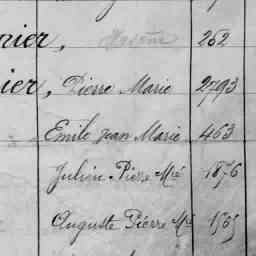 nier, 262
ier, Pierre Marie 2793
Emile Jean Marie 463
Julien Pierre Mie 1876
Auguste Pierre Mie